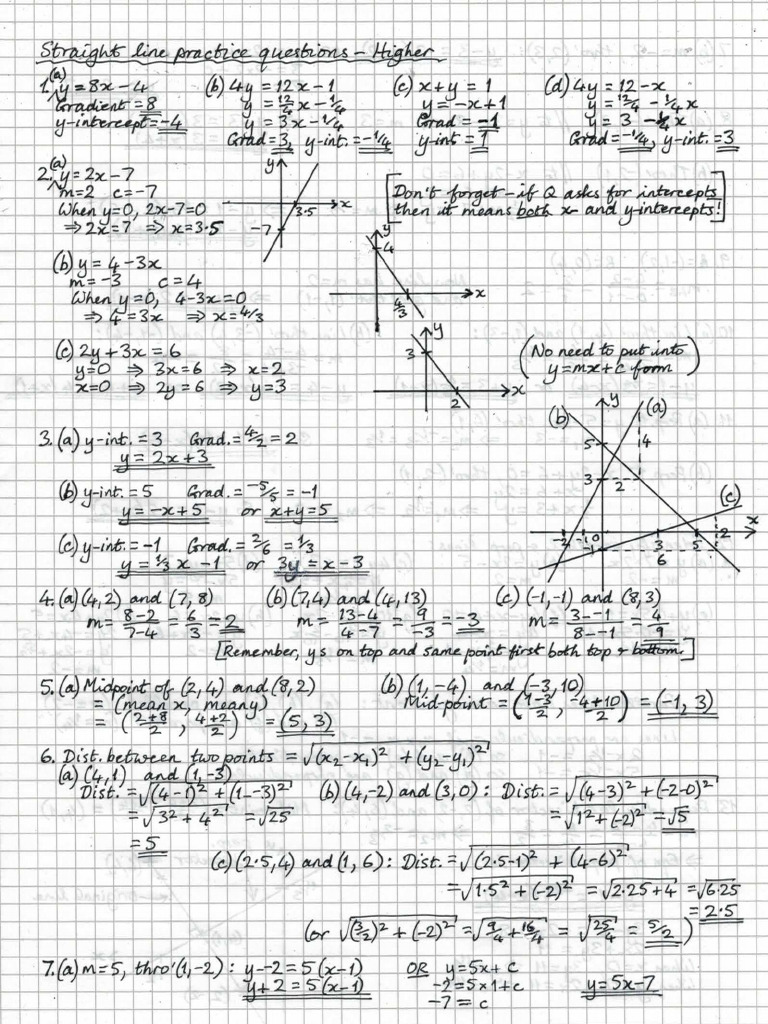 Straight line practice questions – Higher
1.(a) y = 8x - 4
Gradient = 8
y-intercept = -4
(b) 4y = 12x - 1
y = 12/4 x - 1/4
y = 3x - 1/4
Grad = 3, y-int. = -1/4
(c) x + y = 1
y = -x + 1
Grad = -1
y-int = 1
(d) 4y = 12 - x
y = 12/4 - 1/4 x
y = 3 - 1/4 x
Grad = -1/4, y-int. = 3
2.(a) y = 2x - 7
m = 2 c = -7
When y = 0, 2x - 7 = 0
⇒ 2x = 7 ⇒ x = 3·5
y
x
3·5
-7
[Don't forget – if Q asks for intercepts
then it means both x- and y-intercepts!]
(b) y = 4 - 3x
m = -3 c = 4
When y = 0, 4 - 3x = 0
⇒ 4 = 3x ⇒ x = 4/3
y
4
x
4/3
(c) 2y + 3x = 6
y = 0 ⇒ 3x = 6 ⇒ x = 2
x = 0 ⇒ 2y = 6 ⇒ y = 3
y
3
x
2
(No need to put into
y = mx + c form)
3.(a) y-int. = 3 Grad. = 4/2 = 2
y = 2x + 3
(b) y-int. = 5 Grad. = -5/5 = -1
y = -x + 5 or x + y = 5
(c) y-int. = -1 Grad. = 2/6 = 1/3
y = 1/3 x - 1 or 3y = x - 3
(b) y (a)
5 4
3 2
(c)
x
-2 -1 0 3 5 2
-1 6
4.(a) (4,2) and (7,8)
m = 8-2/7-4 = 6/3 = 2
(b) (7,4) and (4,13)
m = 13-4/4-7 = 9/-3 = -3
(c) (-1,-1) and (8,3)
m = 3--1/8--1 = 4/9
[Remember, ys on top and same point first both top & bottom.]
5.(a) Midpoint of (2,4) and (8,2)
= (mean x, mean y)
= (2+8/2, 4+2/2) = (5, 3)
(b) (1,-4) and (-3,10)
Mid-point = (1-3/2, -4+10/2) = (-1, 3)
6. Dist. between two points = √(x₂-x₁)² + (y₂-y₁)²
(a) (4,1) and (1,-3)
Dist. = √(4-1)² + (1--3)²
= √3² + 4² = √25
= 5
(b) (4,-2) and (3,0): Dist. = √(4-3)² + (-2-0)²
= √1² + (-2)² = √5
(c) (2·5,4) and (1,6): Dist. = √(2·5-1)² + (4-6)²
= √1·5² + (-2)² = √2·25+4 = √6·25
= 2·5
(or √(3/2)² + (-2)² = √9/4 + 16/4 = √25/4 = 5/2)
7.(a) m = 5, thro' (1,-2): y--2 = 5(x-1)
y + 2 = 5(x-1)
OR y = 5x + c
-2 = 5×1 + c
-7 = c
y = 5x - 7